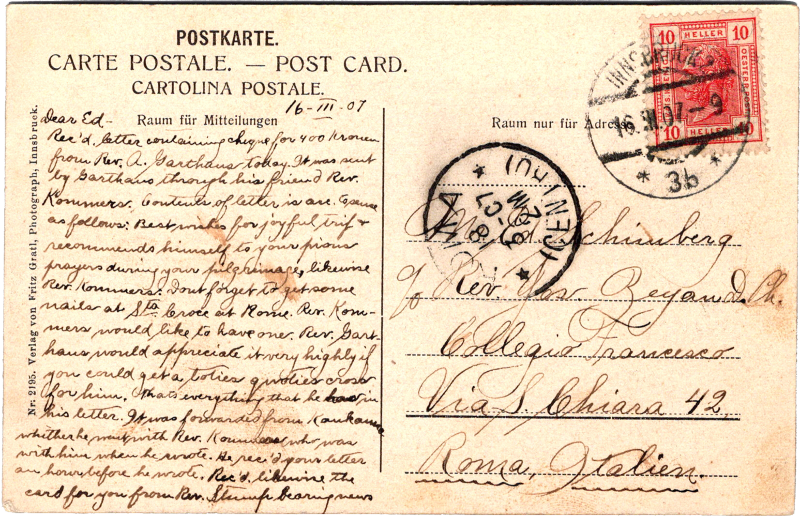 POSTKARTE.
CARTE POSTALE. — POST CARD.
CARTOLINA POSTALE.
16-III-07
Raum für Mitteilungen
Dear Ed-
Rec'd. letter containing cheque for 400 Kronen
from Rev. A. Garthaus today. It was sent
by Garthaus through his friend Rev.
Kommers. Contents of letter is as
as follows: Best wishes for joyful trip &
recommends himself to your pious
prayers during your pilgrimage, likewise
Rev. Kommers. Dont forget to get some
nails at Sta Croce at Rome. Rev. Kom-
mers would like to have one. Rev. Gart-
haus would appreciate it very highly if
you could get a toties quoties cross
for him. Thats everything that he has in
his letter. It was forwarded from Kaukauna
whither he went with Rev. Kommers, who was
with him when he wrote. He rec'd your letter
an hour before he wrote. Rec'd. likewise the
card for you from Rev. Stumpf bearing news
Nr. 2195. Verlag von Fritz Gratl, Photograph, Innsbruck.
Raum nur für Adresse
10 HELLER 10
10 HELLER 10
INNSBRUCK 2
16.III.07-9
* 3b *
ROMA (CENTRO)
Schimberg
c/o Rev. Jos. Ph.
Collegio Francesco
Via S. Chiara 42
Roma, Italien.